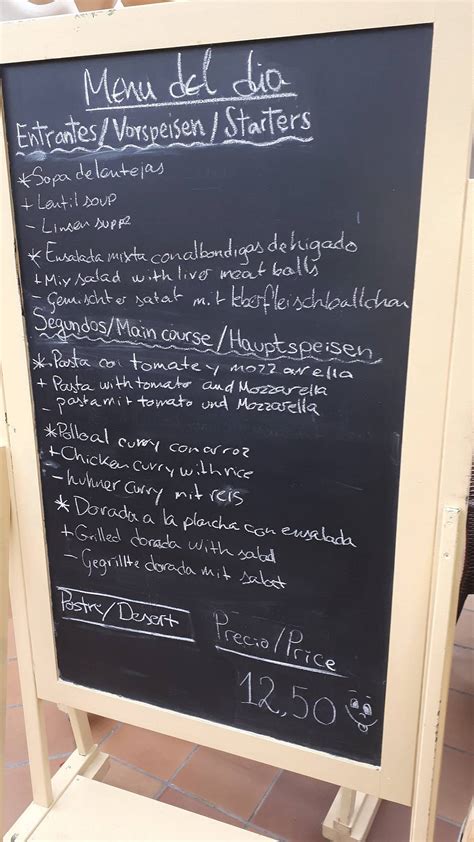 Menu del dia
Entrantes/Vorspeisen/Starters
*Sopa de lentejas
+ Lentil soup
- Linsen suppe
* Ensalada mixta con albondigas de higado
+ Mix salad with liver meat balls
- Gemischter salat mit leberfleischballchen
Segundos/Main course/Hauptspeisen
* Pasta con tomate y mozzarella
+ Pasta with tomato and Mozzarella
- pasta mit tomato und Mozzarella
*Pollo al curry con arroz
+ Chicken curry with rice
- huhner curry mit reis
* Dorada a la plancha con ensalada
+ Grilled dorada with salad
- Gegrillte dorada mit salat
Postre/Desert
Precio/Price
12,50